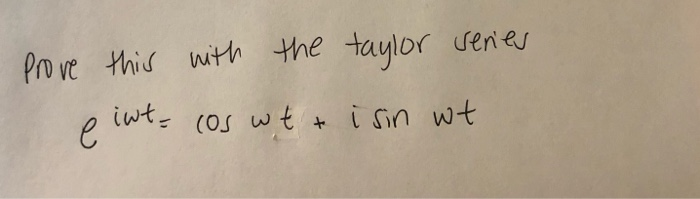 Prove this with the taylor series
e^iwt = cos wt + i sin wt